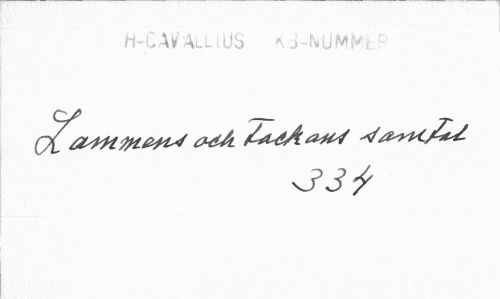 H-CAVALLIUS KB-NUMMER
Lammens och Tackans samtal
334